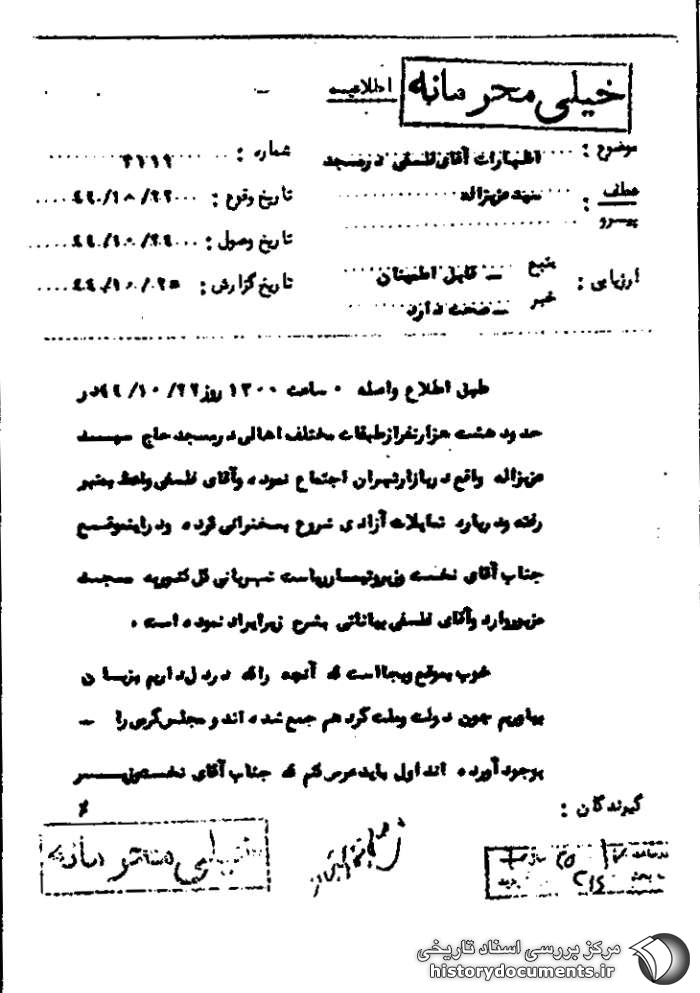 خیلی محرمانه
اطلاعیه
موضوع : اظهارات آقای فلسفی در مسجد
سید عزیزاله
عطف :
پیرو
ارزیابی : منبع ــ قابل اطمینان
خبر ــ صحت دارد
شماره :
تاریخ وقوع :
تاریخ وصول :
تاریخ گزارش :
طبق اطلاع واصله ۰ ساعت ۱۳۰۰ روز ۲۲/ ۱۰/ ۴۶ در
حدود هشت هزار نفر از طبقات مختلف اهالی در مسجد حاج سید
عزیزاله واقع در بازار تهران اجتماع نموده و آقای فلسفی واعظ بمنبر
رفته و درباره تمایلات آزادی شروع بسخنرانی کرده و در اینموقع
جناب آقای نخست وزیر و تیمسار ریاست شهربانی کل کشور به مسجد
مزبور وارد و آقای فلسفی بیاناتی بشرح زیر ایراد نموده است .
خوب بموقع و بجا است که آنچه را که در دل داریم بزبان
بیاوریم چون دولت و ملت گرد هم جمع شده اند و مجلس گرمی را ــ
بوجود آورده اند اول باید عرض کنم که جناب آقای نخست وزیر
گیرندگان :
خیلی محرمانه
مرکز بررسی اسناد تاریخی
historydocuments.ir